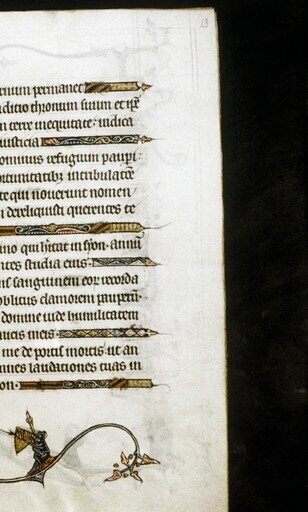 13
ernum permanet
iditio thronum suum et ip̄e
m terre in equitate: iudica
iusticia
ominus refugium paupi:
ortunitatibꝫ in tribulac̄oe
te qui nouerunt nomen
i dereliquisti querentes te
ino qui hītat in syon: annū
ntes studia eius:
ns sanguinem eoꝝ recorda
oblitus clamorem paupeꝝ:
domine uide humilitatem
micis meis:
me de portis mortis: ut an
mnes laudationes tuas in
on: